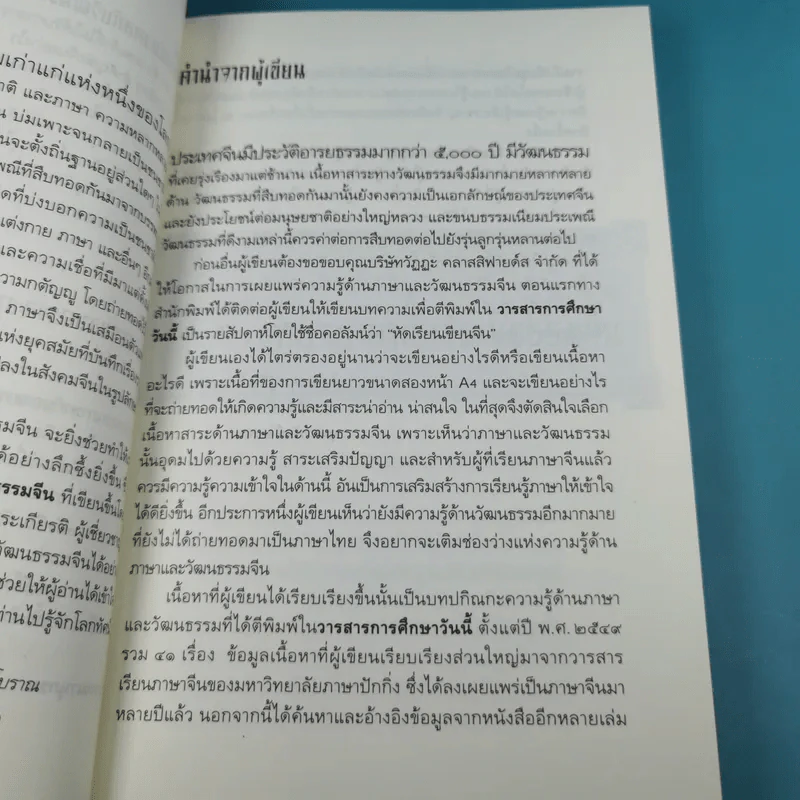 มเก่าแก่แห่งหนึ่งของโลก
าติ และภาษา ความหลากหล
น บ่มเพาะจนกลายเป็นขนบ
นจะตั้งถิ่นฐานอยู่ส่วนใดๆ
พณีที่สืบทอดกันมาจากบรรพ
ดที่บ่งบอกความเป็นชนชา
แต่งกาย ภาษา และอื่นๆ อีก
และความเชื่อที่มีมาแต่
วามกตัญญู โดยถ่ายทอด
ภาษาจึงเป็นเสมือนตัวแ
ห่งยุคสมัยที่บันทึกเรื่อง
ปลงในสังคมจีนในรูปลักษ
รรมจีน จะยิ่งช่วยทำให้
ด้อย่างลึกซึ้งยิ่งขึ้น
รรมจีน ที่เขียนขึ้นโดย
ระเกียรติ ผู้เชี่ยวชาญ
วัฒนธรรมจีนได้อย่า
ช่วยให้ผู้อ่านได้เข้าใ
ท่านไปรู้จักโลกทัศน์
โบราณ
คำนำจากผู้เขียน
ประเทศจีนมีประวัติอารยธรรมมากกว่า ๕,๐๐๐ ปี มีวัฒนธรรม
ที่เคยรุ่งเรืองมาแต่ช้านาน เนื้อหาสาระทางวัฒนธรรมจึงมีมากมายหลากหลาย
ด้าน วัฒนธรรมที่สืบทอดกันมานั้นยังคงความเป็นเอกลักษณ์ของประเทศจีน
และยังประโยชน์ต่อมนุษยชาติอย่างใหญ่หลวง และขนบธรรมเนียมประเพณี
วัฒนธรรมที่ดีงามเหล่านี้ควรค่าต่อการสืบทอดต่อไปยังรุ่นลูกรุ่นหลานต่อไป
ก่อนอื่นผู้เขียนต้องขอขอบคุณบริษัทวัฏฏะ คลาสสิฟายด์ส จำกัด ที่ได้
ให้โอกาสในการเผยแพร่ความรู้ด้านภาษาและวัฒนธรรมจีน ตอนแรกทาง
สำนักพิมพ์ได้ติดต่อผู้เขียนให้เขียนบทความเพื่อตีพิมพ์ใน วารสารการศึกษา
วันนี้ เป็นรายสัปดาห์โดยใช้ชื่อคอลัมน์ว่า "หัดเรียนเขียนจีน"
ผู้เขียนเองได้ไตร่ตรองอยู่นานว่าจะเขียนอย่างไรดีหรือเขียนเนื้อหา
อะไรดี เพราะเนื้อที่ของการเขียนยาวขนาดสองหน้า A4 และจะเขียนอย่างไร
ที่จะถ่ายทอดให้เกิดความรู้และมีสาระน่าอ่าน น่าสนใจ ในที่สุดจึงตัดสินใจเลือก
เนื้อหาสาระด้านภาษาและวัฒนธรรมจีน เพราะเห็นว่าภาษาและวัฒนธรรม
นั้นอุดมไปด้วยความรู้ สาระเสริมปัญญา และสำหรับผู้ที่เรียนภาษาจีนแล้ว
ควรมีความรู้ความเข้าใจในด้านนี้ อันเป็นการเสริมสร้างการเรียนรู้ภาษาให้เข้าใจ
ได้ดียิ่งขึ้น อีกประการหนึ่งผู้เขียนเห็นว่ายังมีความรู้ด้านวัฒนธรรมอีกมากมาย
ที่ยังไม่ได้ถ่ายทอดมาเป็นภาษาไทย จึงอยากจะเติมช่องว่างแห่งความรู้ด้าน
ภาษาและวัฒนธรรมจีน
เนื้อหาที่ผู้เขียนได้เรียบเรียงขึ้นนั้นเป็นบทปกิณกะความรู้ด้านภาษา
และวัฒนธรรมที่ได้ตีพิมพ์ในวารสารการศึกษาวันนี้ ตั้งแต่ปี พ.ศ. ๒๕๔๙
รวม ๔๑ เรื่อง ข้อมูลเนื้อหาที่ผู้เขียนเรียบเรียงส่วนใหญ่มาจากวารสาร
เรียนภาษาจีนของมหาวิทยาลัยภาษาปักกิ่ง ซึ่งได้ลงเผยแพร่เป็นภาษาจีนมา
หลายปีแล้ว นอกจากนี้ได้ค้นหาและอ้างอิงข้อมูลจากหนังสืออีกหลายเล่ม